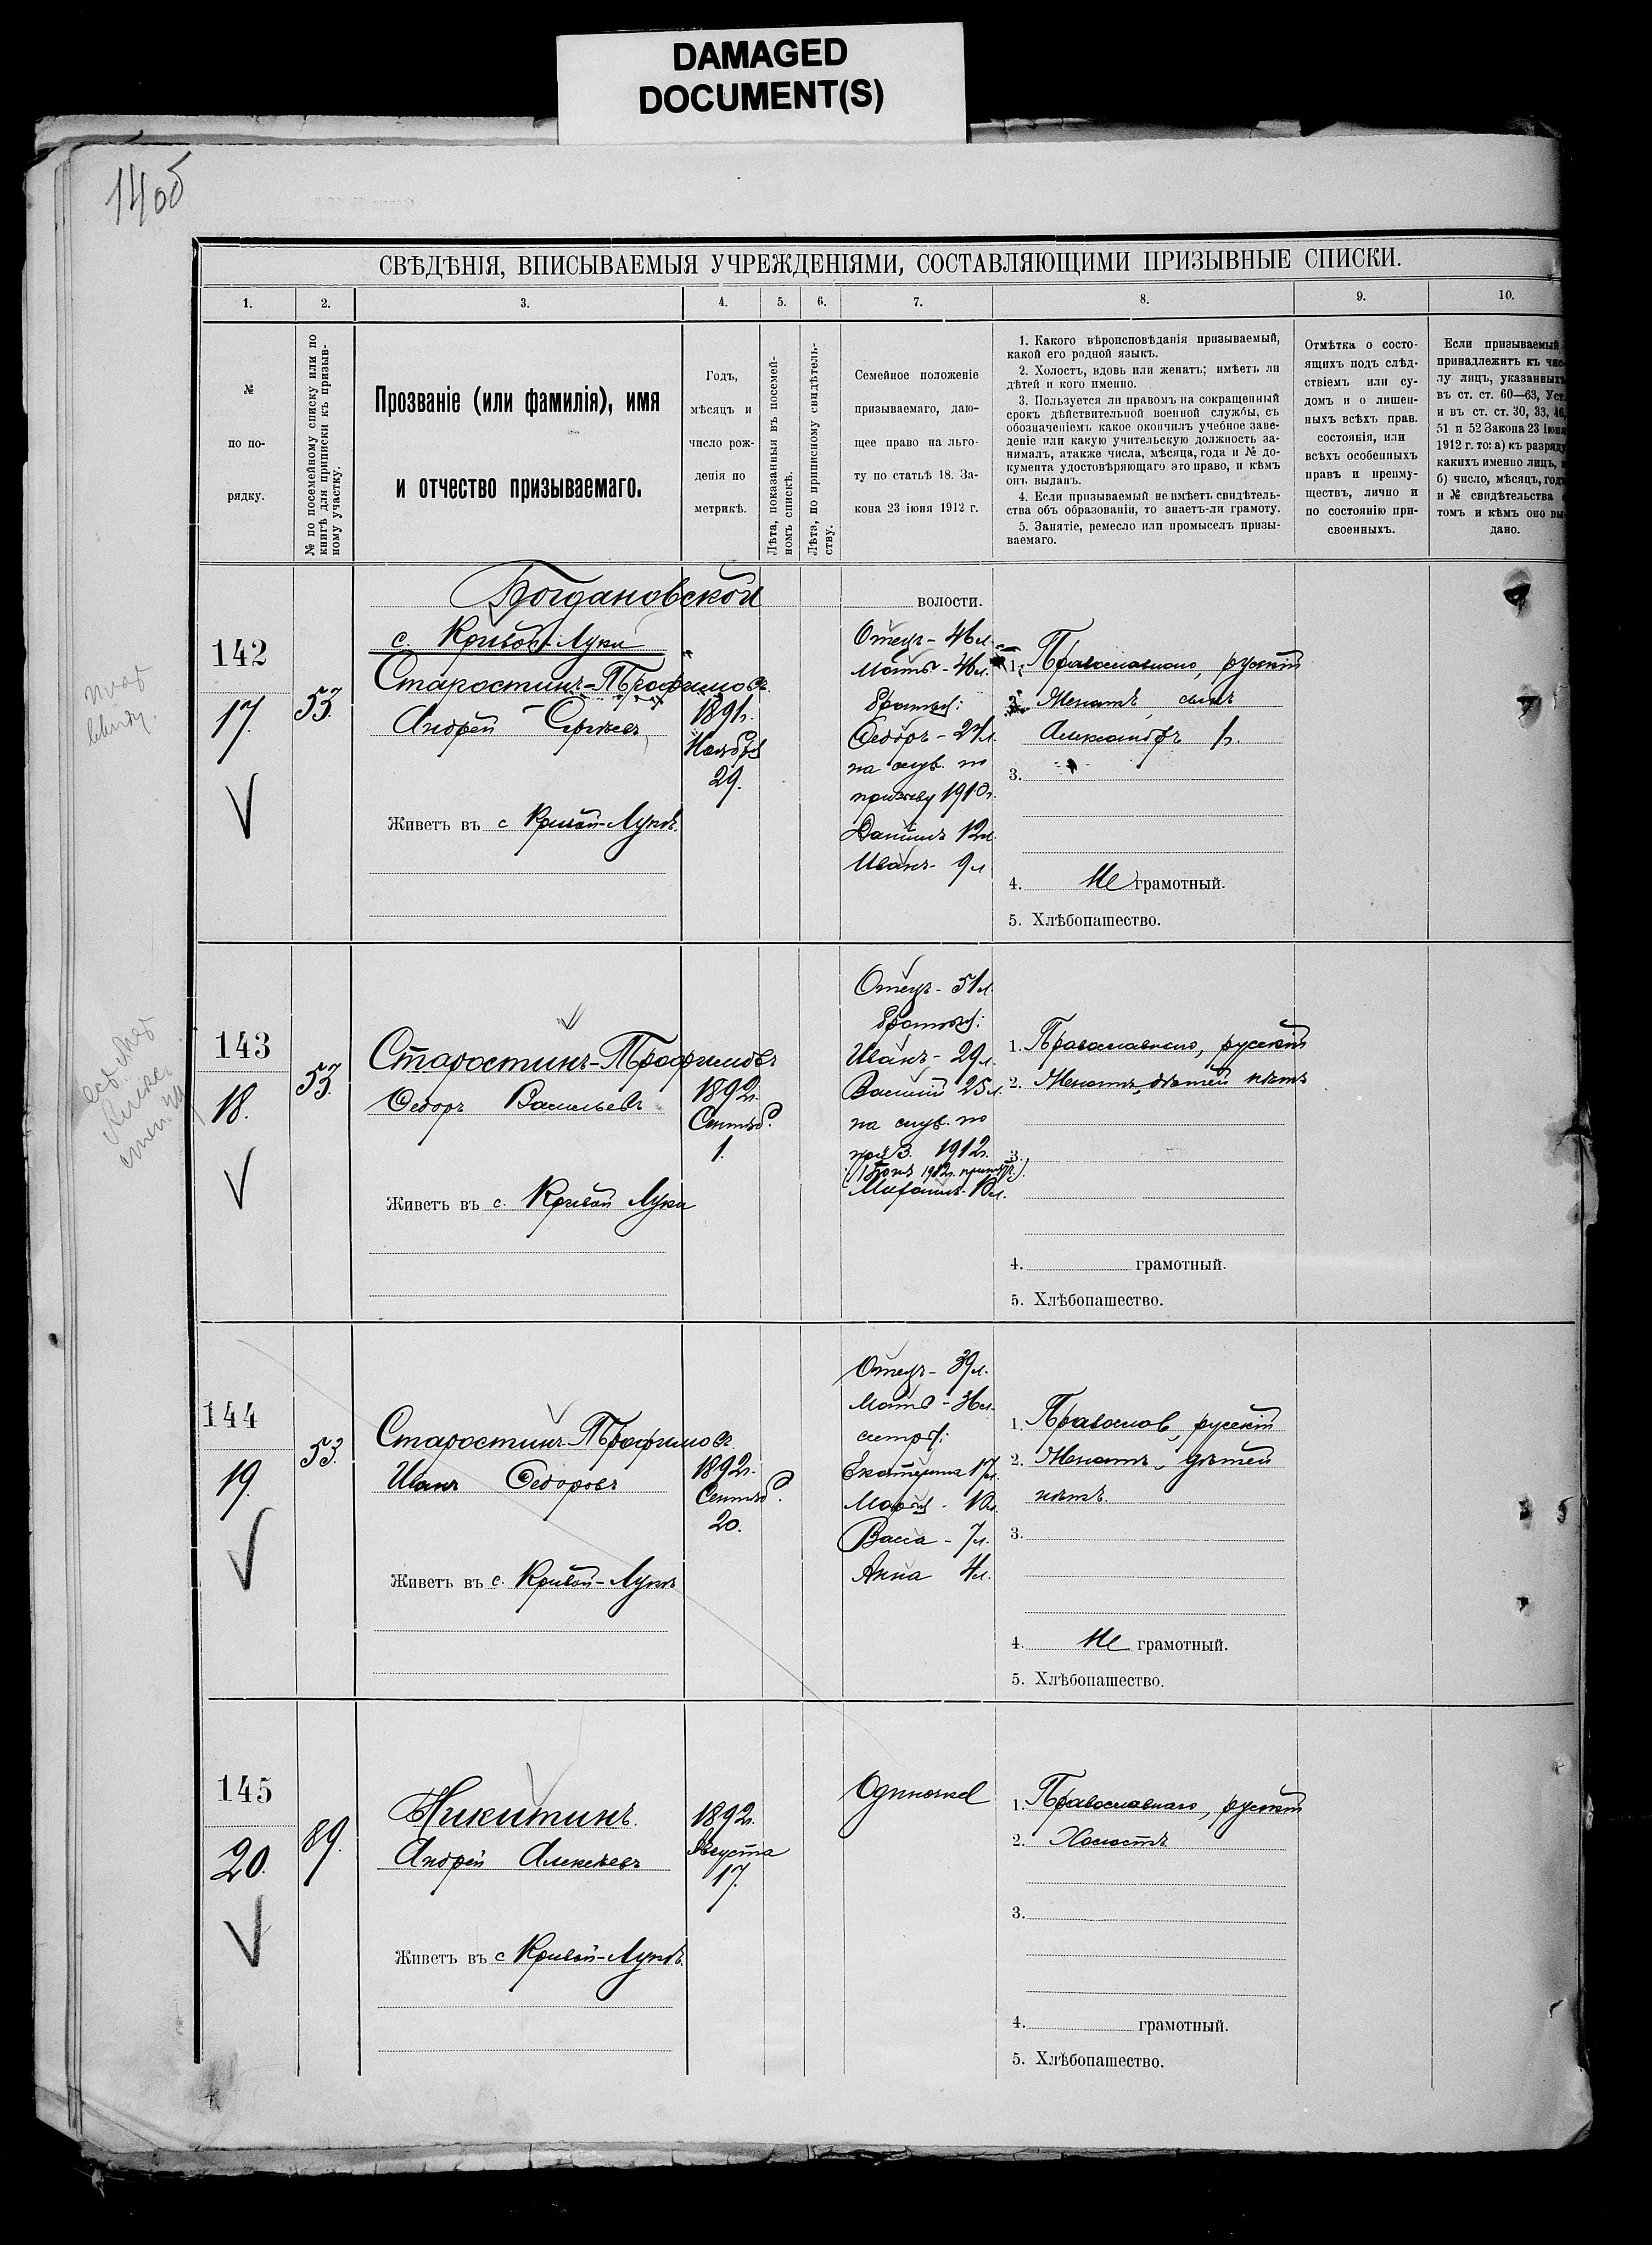 DAMAGED
DOCUMENT(S)
14об
СВѢДѢНІЯ, ВПИСЫВАЕМЫЯ УЧРЕЖДЕНІЯМИ, СОСТАВЛЯЮЩИМИ ПРИЗЫВНЫЕ СПИСКИ.
1.
2.
3.
4.
5.
6.
7.
8.
9.
10.
№
по по-
рядку.
№ по посемейному списку или по
книгѣ для приписки къ призыв-
ному участку.
Прозваніе (или фамилія), имя
и отчество призываемаго.
Годъ,
мѣсяцъ и
число рож-
денія по
метрикѣ.
Лѣта, показанныя въ посемей-
номъ спискѣ.
Лѣта, по приписному свидѣтель-
ству.
Семейное положеніе
призываемаго, даю-
щее право на льго-
ту по статьѣ 18. За-
кона 23 іюня 1912 г.
1. Какого вѣроисповѣданія призываемый,
какой его родной языкъ.
2. Холостъ, вдовъ или женатъ; имѣетъ ли
дѣтей и кого именно.
3. Пользуется ли правомъ на сокращенный
срокъ дѣйствительной военной службы, съ
обозначеніемъ какое окончилъ учебное заве-
деніе или какую учительскую должность за-
нималъ, атакже числа, мѣсяца, года и № до-
кумента удостовѣряющаго это право, и кѣмъ
онъ выданъ.
4. Если призываемый не имѣетъ свидѣтель-
ства объ образованіи, то знаетъ-ли грамоту.
5. Занятіе, ремесло или промыселъ призы-
ваемаго.
Отмѣтка о состо-
ящихъ подъ слѣд-
ствіемъ или су-
домъ и о лишен-
ныхъ всѣхъ прав.
состоянія, или
всѣхъ особенныхъ
правъ и преиму-
ществъ, лично и
по состоянію при-
своенныхъ.
Если призываемый
принадлежитъ къ чис-
лу лицъ, указанныхъ
въ ст. ст. 60—63, Уст.
и въ ст. ст. 30, 33, 46,
51 и 52 Закона 23 іюня
1912 г. то: а) къ разряду
какихъ именно лицъ, и
б) число, мѣсяцъ, годъ
и № свидѣтельства о
томъ и кѣмъ оно вы-
дано.
Богдановской волости.
с. Кривой-Луки
142
17.
53.
Старостинъ-Трофимовъ
Андрей Сергѣевъ
Живетъ въ с Кривой-Лукѣ.
1891г.
Ноября
29.
Отецъ - 46л.
Мать - 46л.
братья:
Ѳедоръ - 24л.
на служ. по
призыву 1910г.
Даніилъ 12л.
Иванъ - 9л
1. Православнаго, русскій
2. Женатъ, сынъ
Александръ 1г.
3.
4. Не грамотный.
5. Хлѣбопашество.
143
18.
53.
Старостинъ-Трофимовъ
Ѳедоръ Васильевъ
Живетъ въ с. Кривой Луки
1892г.
Сентяб.
1.
Отецъ - 51л.
братья:
Иванъ - 29л.
Василій 25л.
на служ. по
приз. 1912г.
Мифодій - 10л.
1. Православнаго, русскій
2. Женатъ, дѣтей нѣтъ
3.
4. грамотный.
5. Хлѣбопашество.
144
19.
53.
Старостинъ-Трофимовъ
Иванъ Ѳедоровъ
Живетъ въ с. Кривой-Лукѣ
1892г.
Сентяб.
20.
Отецъ - 39л.
Мать - 36л.
сестры:
Екатерина 17л.
Марья - 10л.
Васса - 7л.
Анна 4л.
1. Православ, русскій
2. Женатъ, дѣтей
нѣтъ.
3.
4. Не грамотный.
5. Хлѣбопашество.
145
20.
89.
Никитинъ.
Андрей Алексѣевъ
Живетъ въ с Кривой-Лукѣ.
1892г.
Августа
17.
Одиночка
1. Православнаго, русскій
2. Холостъ
3.
4. грамотный.
5. Хлѣбопашество.